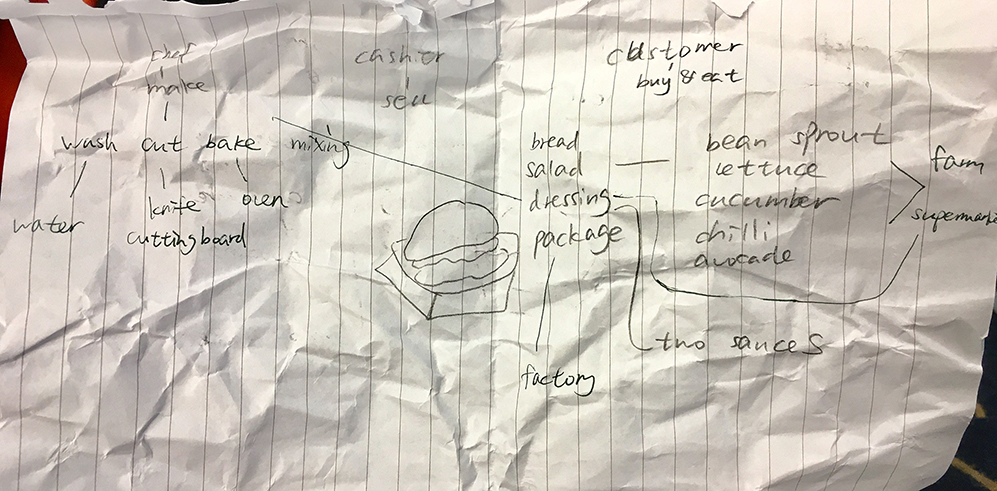 chef
cashier
customer
make
sell
buy & eat
wash cut bake mixing
water
knife
cutting board
oven
bread
salad
dressing
package
factory
bean sprout
lettuce
cucumber
chilli
avocade
farm
supermarke
two sauces